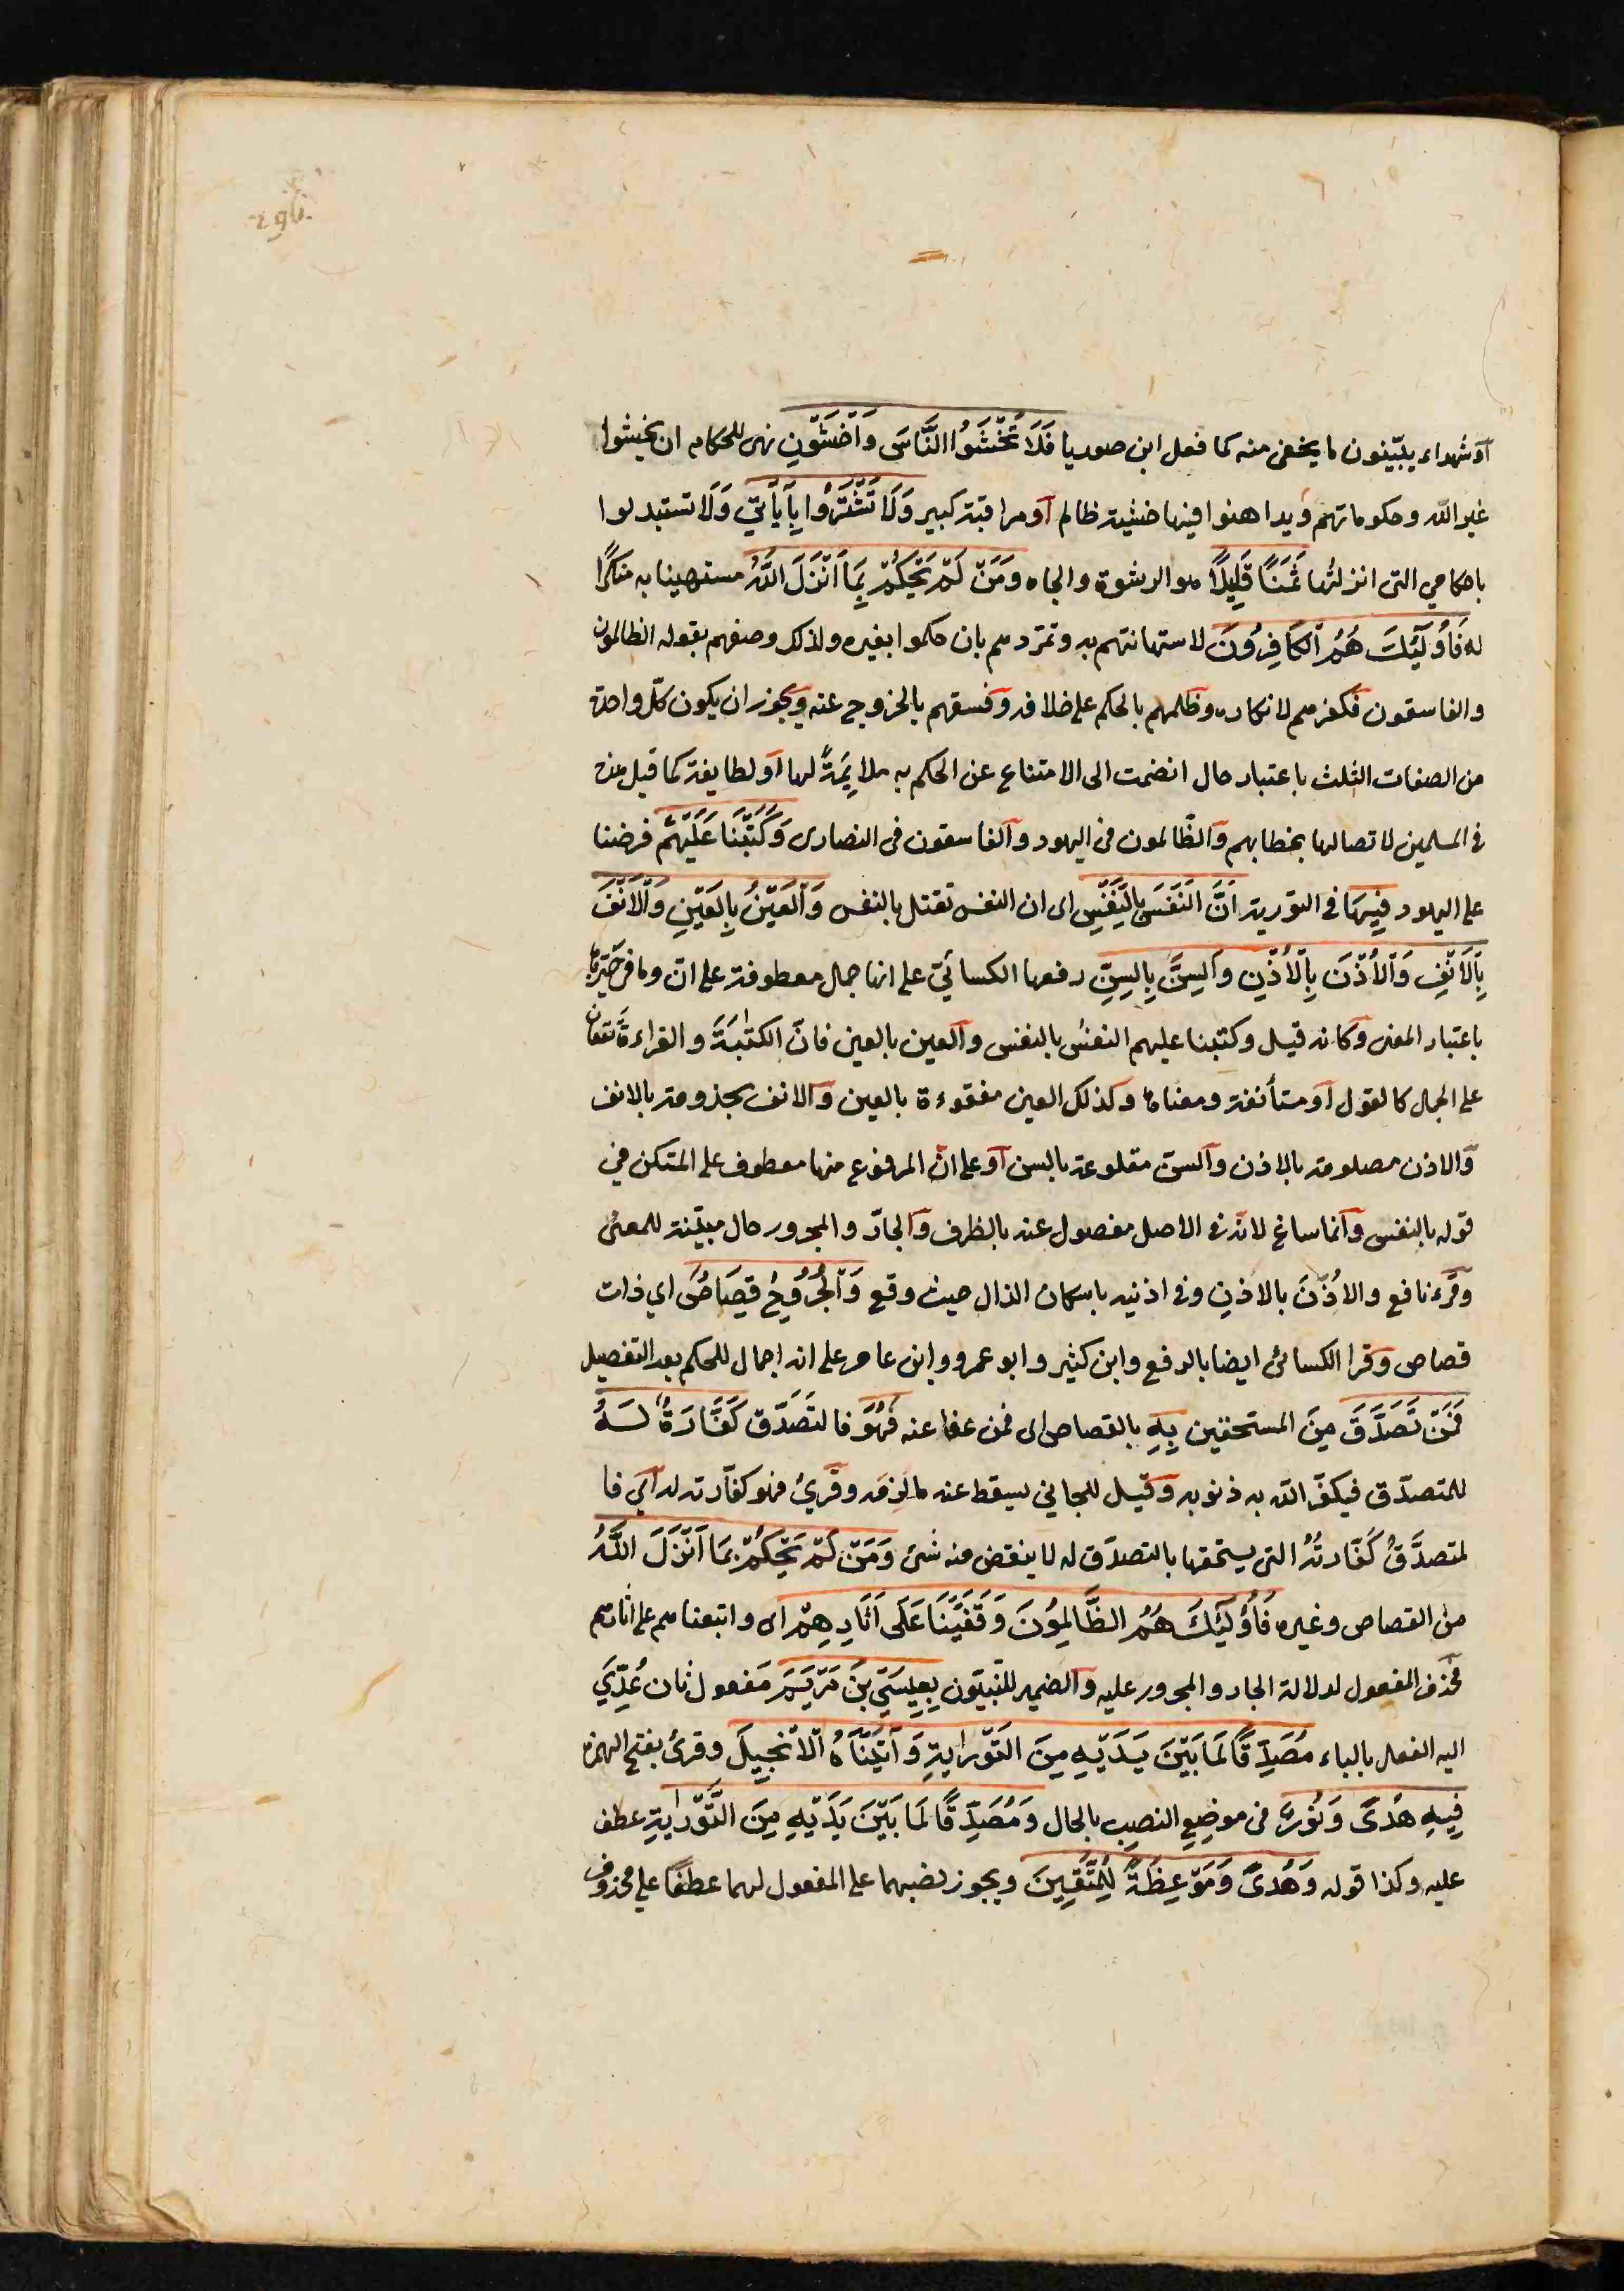 296.
أو شهداء يبيّنون ما يخفى منه كما فعل ابن صوريا فَلَا تَخْشَوُا النَّاسَ وَاخْشَوْنِ نهى للحكام ان يخشوا
غير الله وحكوماتهم ويداهنوا فيها خشية ظالم أو مراقبة كبير وَلَا تَشْتَرُوا بِآيَاتِي وَلَا تستبدلوا
باحكامي التى انزلتُها ثَمَنًا قَلِيلًا هو الرشوة والجاه وَمَنْ لَمْ يَحْكُمْ بِمَا اَنْزَلَ اللَّهُ مستهينا به منكرًا
له فَأُولَٰئِكَ هُمُ الْكَافِرُونَ لاستهانتهم به وتمرّدهم بان حكموا بغيره ولذلك وصفهم بقوله الظالمون
والفاسقون فكفرهم لانكاره وظلمهم بالحكم على خلافه وفسقهم بالخروج عنه ويجوز ان يكون كلّ واحدة
من الصفات الثلث باعتبار حال انضمت الى الامتناع عن الحكم به ملايمةً لها أو لطايفة كما قيل هذه
فى المسلمين لاتصالها بخطابهم والظّالمون فى اليهود والفاسقون فى النصارى وَكَتَبْنَا عَلَيْهِمْ فرضنا
على اليهود فِيهَا فى التورية اَنَّ النَّفْسَ بِالنَّفْسِ اى ان النفس تقتل بالنفس وَالْعَيْنُ بِالْعَيْنِ وَالْاَنْفَ
بِالْاَنْفِ وَالْأُذْنَ بِالْأُذْنِ وَالسِّنَّ بِالسِّنِّ رفعها الكسائيّ على انها جمل معطوفة على انّ وما فى حيّزها
باعتبار المعنى وكانه قيل وكتبنا عليهم النفسُ بالنفس والعين بالعين فانّ الكتْبَةَ والقراءةَ تقعان
على الجمل كالقول أو مستأنفة ومعناها وكذلك العين مفقوءة بالعين والانف مجذومة بالانف
والاذن مصلومة بالاذن والسنّ مقلوعة بالسن أو على انّ المرفوع منها معطوف على المتكن فى
قوله بالنفس وانما ساغ لانّه فى الاصل مفصول عنه بالظرف والجارّ والمجرور حال مبيّنة للمعنى
وقرء نافع والاذْنَ بالاذنِ وفى اذنيه باسكان الذال حيث وقع وَالْجُرُوحُ قِصَاصٌ اي ذات
قصاص وقرا الكسائى ايضا بالرفع وابن كثير وابو عمرو وابن عامر على انه اجمال للحكم بعد التفصيل
فَمَنْ تَصَدَّقَ مِنَ المستحقين بِهِ بالقصاص اى فمن عفا عنه فَهُوَ فالتصَدّق كَفَّارَةٌ لَهُ
للمتصدّق فيكفّر الله به ذنوبه وقيل للجاني يسقط عنه ما لزمه وقرئ فهو كفّارته له اَي فا
لمتصدّقُ كفّارتُهُ التى يستحقها بالتصدّق له لا ينقص منه شئ وَمَنْ لَمْ يَحْكُمْ بِمَا اَنْزَلَ اللَّهُ
من القصاص وغيره فَأُولَٰئِكَ هُمُ الظَّالِمُونَ وَقَفَّيْنَا عَلَى آثَارِهِمْ اى واتبعناهم على اثارهم
فحذف المفعول لدلالة الجار والمجرور عليه والضمير للنبيّون بِعِيسَى بْنَ مَرْيَمَ مفعول ثان عُدِّيَ
اليه الفعل بالباء مُصَدِّقًا لِمَا بَيْنَ يَدَيْهِ مِنَ التَّوْرَايةِ وَآتَيْنَاهُ الْاِنْجِيلَ وقرئ بفتح الهمزة
فِيهِ هُدًى وَنُورٌ فى موضع النصب بالحال وَمُصَدِّقًا لِمَا بَيْنَ يَدَيْهِ مِنَ التَّوْرَايةِ عطف
عليه وكذا قوله وَهُدًى وَمَوْعِظَةً لِلْمُتَّقِينَ ويجوز نصبهما على المفعول لهما عطفًا على محذوف